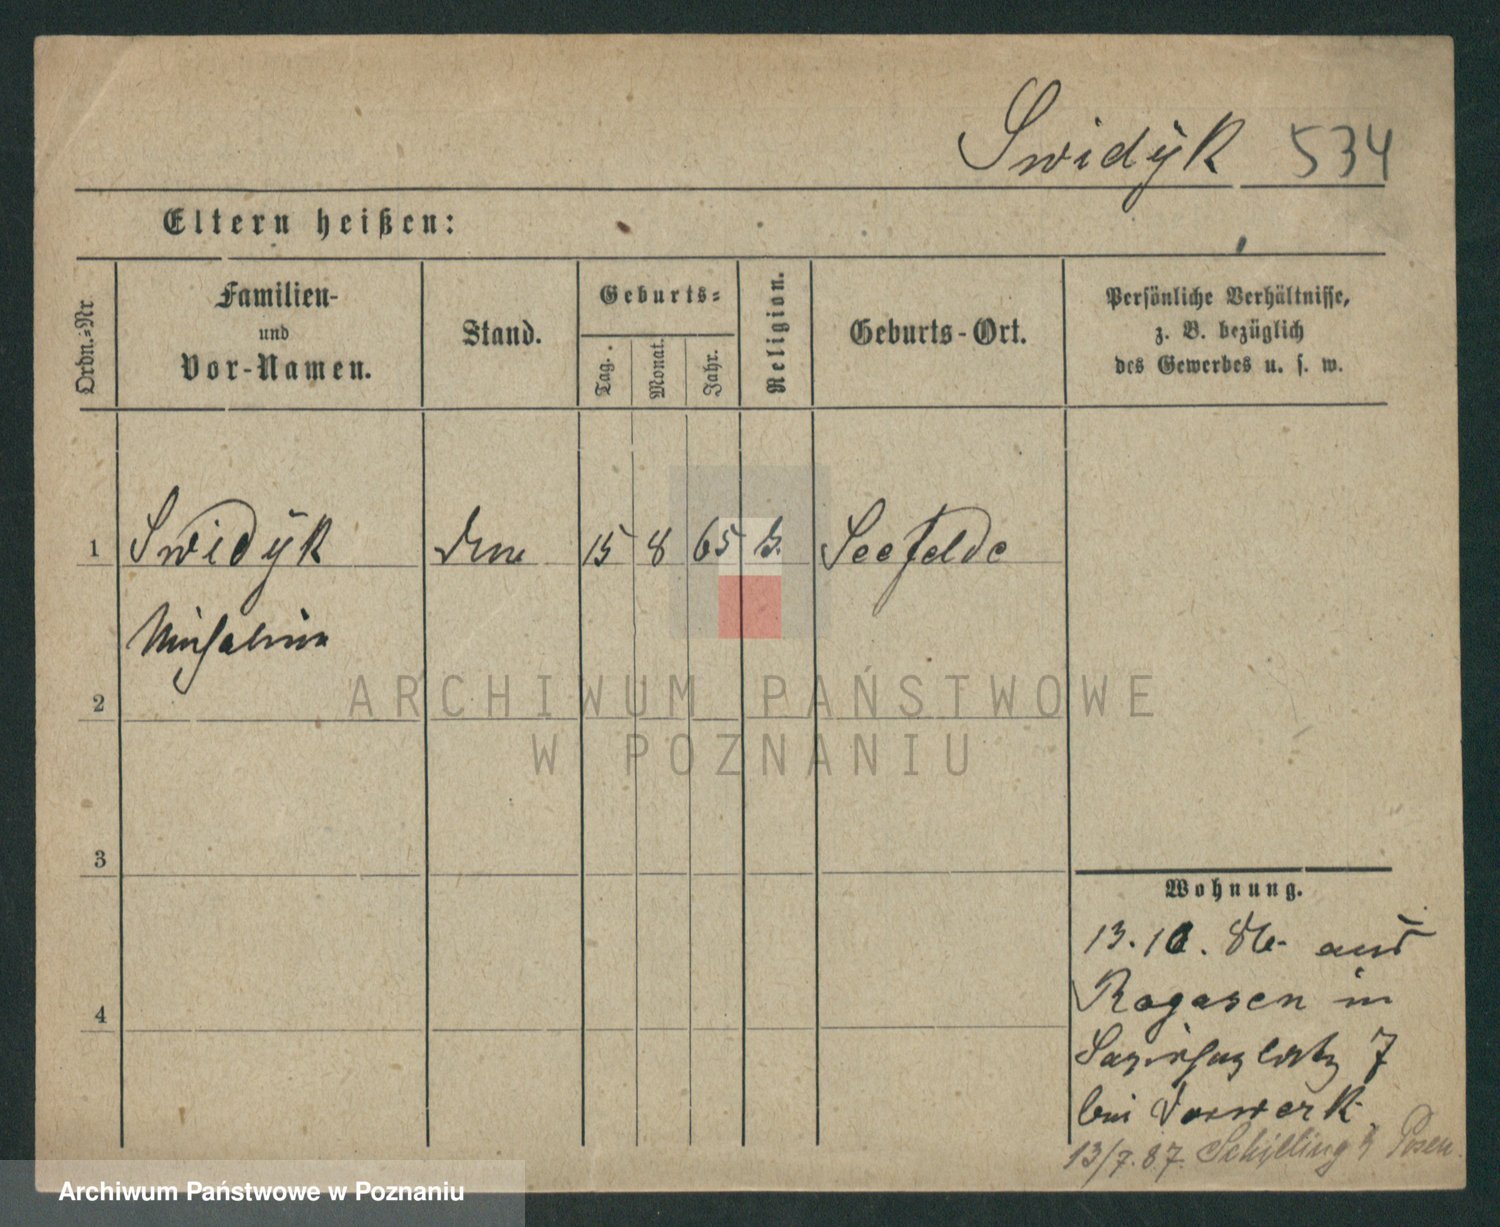 Swidÿk 534
Eltern heißen:
Ordn.=Nr
Familien-
und
Vor-Namen.
Stand.
Geburts=
Tag.
Monat.
Jahr.
Religion.
Geburts-Ort.
Persönliche Verhältnisse,
z. B. bezüglich
des Gewerbes u. s. w.
1 Swidÿk 15 8 65 Seefelde
2
3
4
Wohnung.
13. 10. 86. aus
Rogasen in
Sapiehaplatz 7
bei Vorwerk
13/7.87. Schilling b Posen.
ARCHIWUM PAŃSTWOWE
W POZNANIU
Archiwum Państwowe w Poznaniu